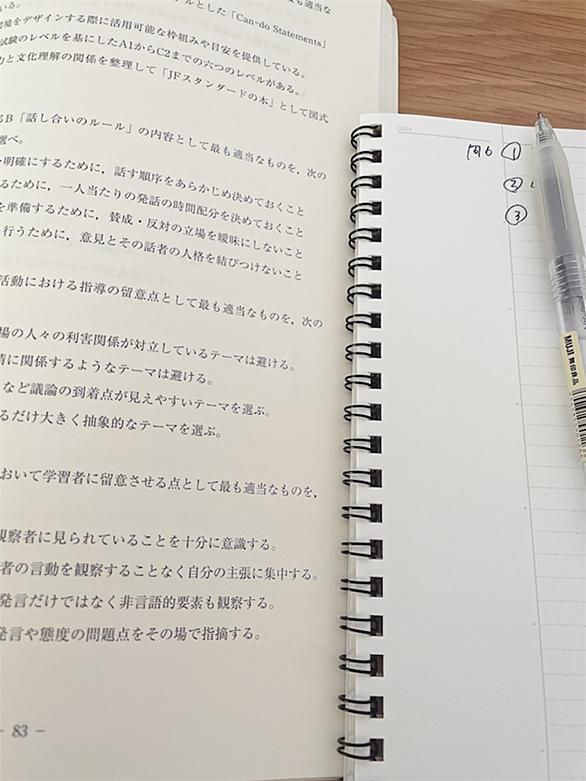 ルとした「Can-do Statements」
いる。
環境をデザインする際に活用可能な枠組みや目安を提供している。
試験のレベルを基にしたA1からC2までの六つのレベルがある。
力と文化理解の関係を整理して「JFスタンダードの木」として図式
B「話し合いのルール」の内容として最も適当なものを，次の
選べ。
明確にするために，話す順序をあらかじめ決めておくこと
るために，一人当たりの発話の時間配分を決めておくこと
を準備するために，賛成・反対の立場を曖昧にしないこと
行うために，意見とその話者の人格を結びつけないこと
活動における指導の留意点として最も適当なものを，次の
場の人々の利害関係が対立しているテーマは避ける。
情に関係するようなテーマは避ける。
など議論の到着点が見えやすいテーマを選ぶ。
るだけ大きく抽象的なテーマを選ぶ。
おいて学習者に留意させる点として最も適当なものを，
観察者に見られていることを十分に意識する。
者の言動を観察することなく自分の主張に集中する。
発言だけではなく非言語的要素も観察する。
発言や態度の問題点をその場で指摘する。
- 83 -
Date
問6 ①
②
③
MUJI 無印良品